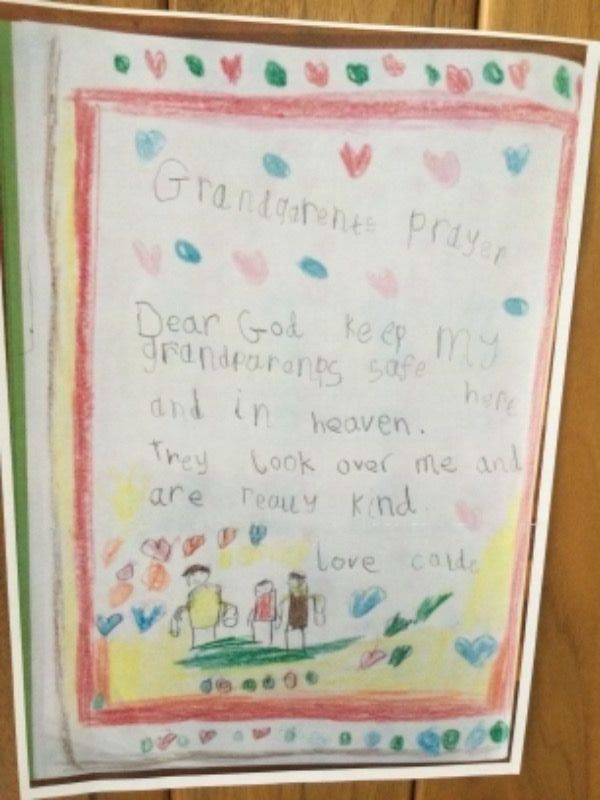 Grandparents prayer
Dear God keep my
grandparents safe here
and in heaven.
They look over me and
are really kind.
love